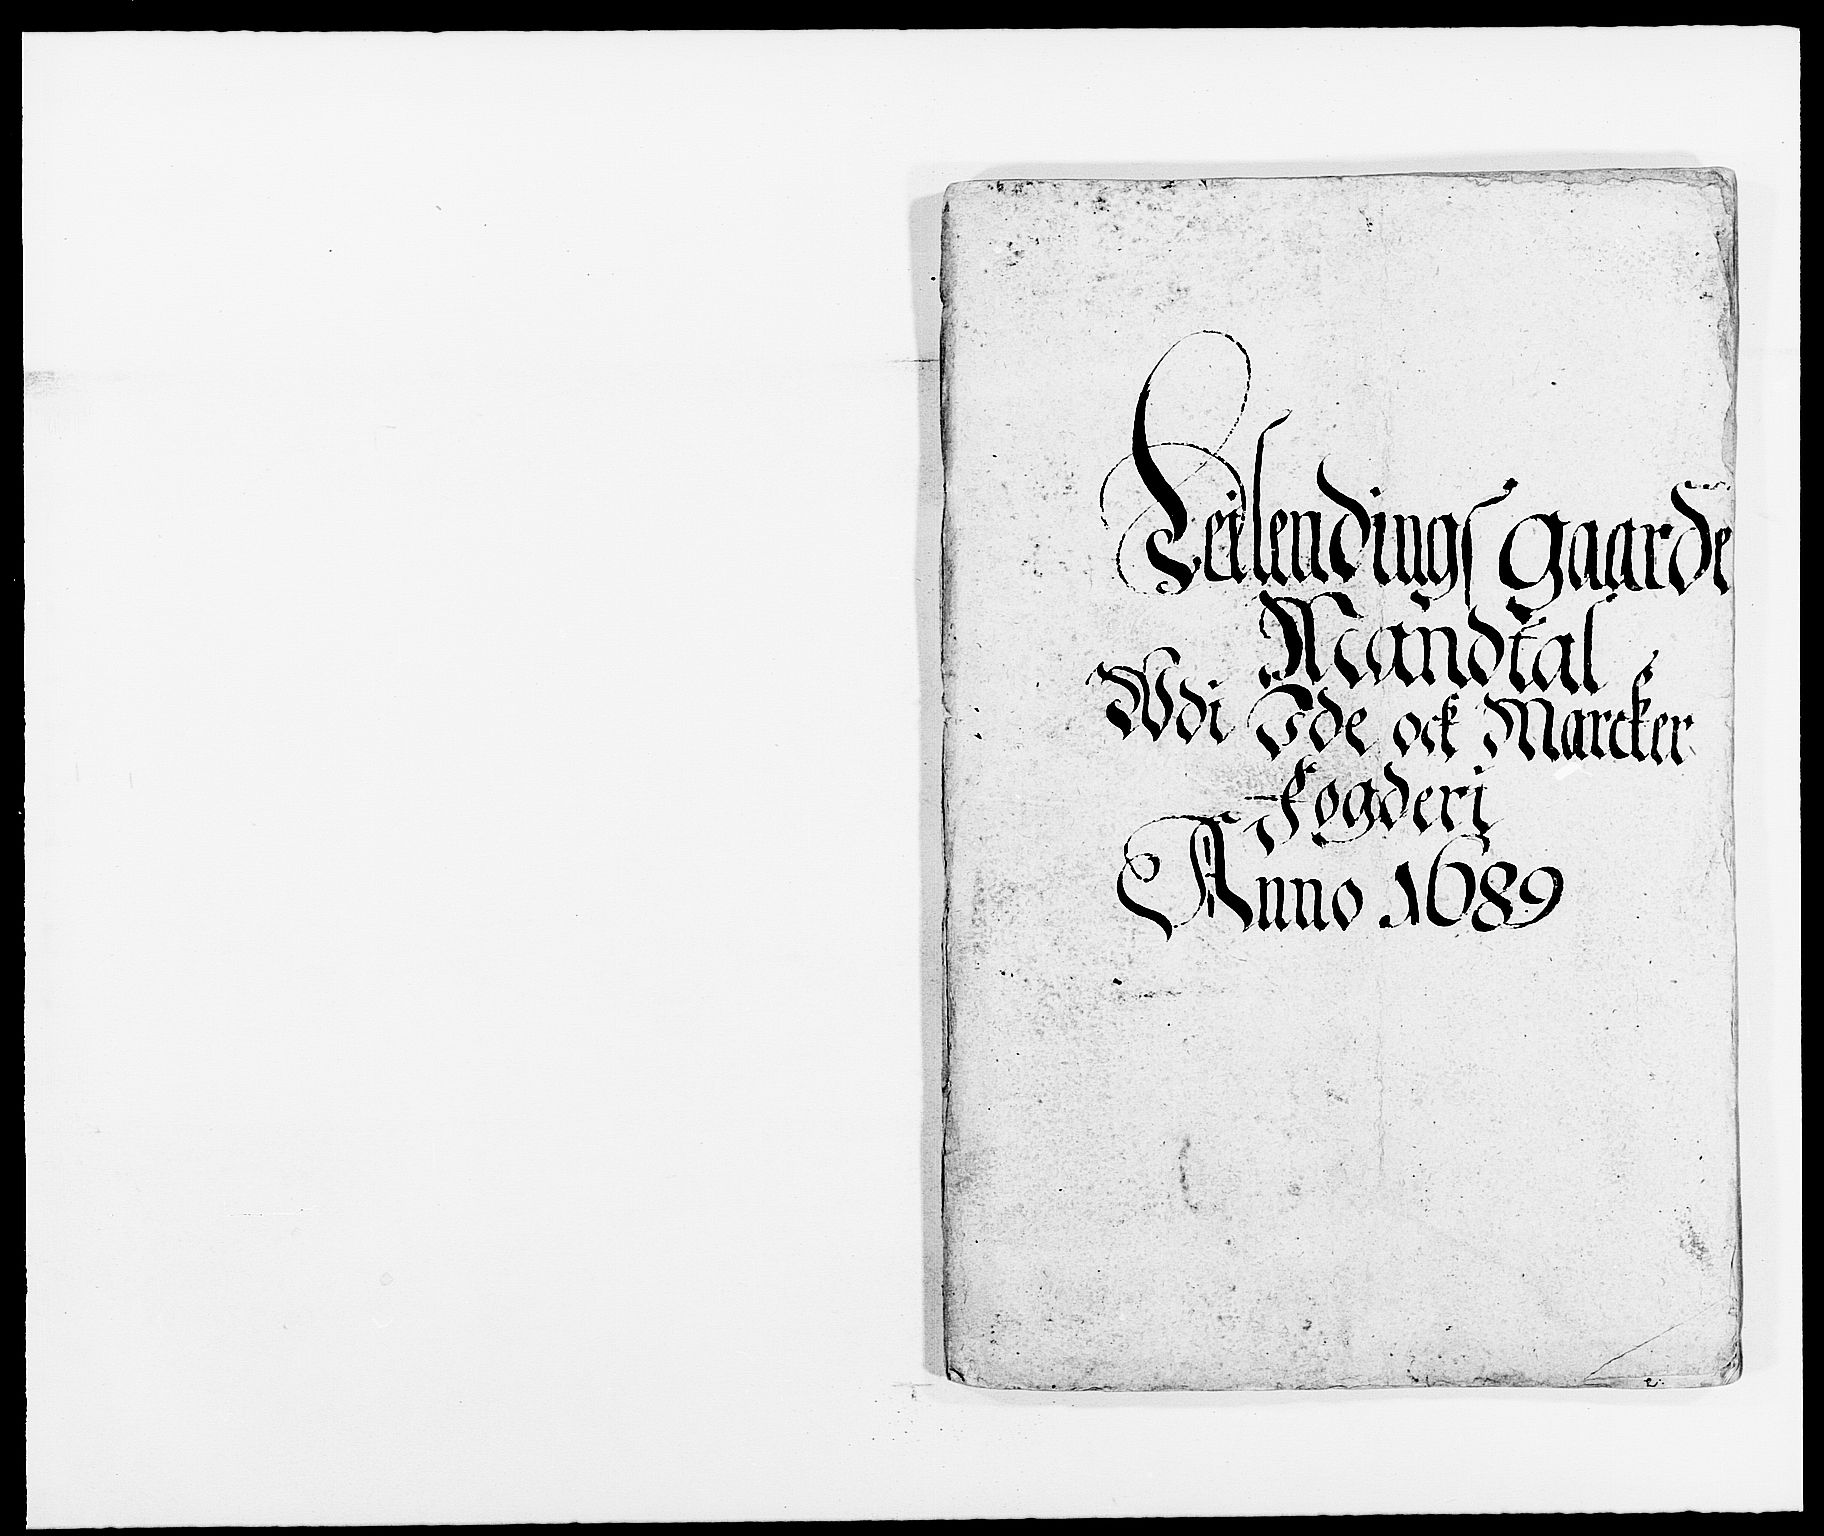 Leilendings gaarde
Mandtal
Wdi Ide ock Marcker
Fogderi
Anno 1689